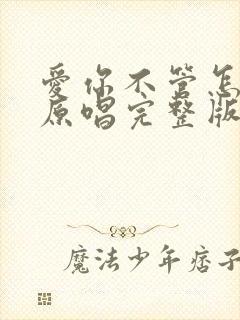 愛你不管怎
原唱完整版
魔法少年痞子